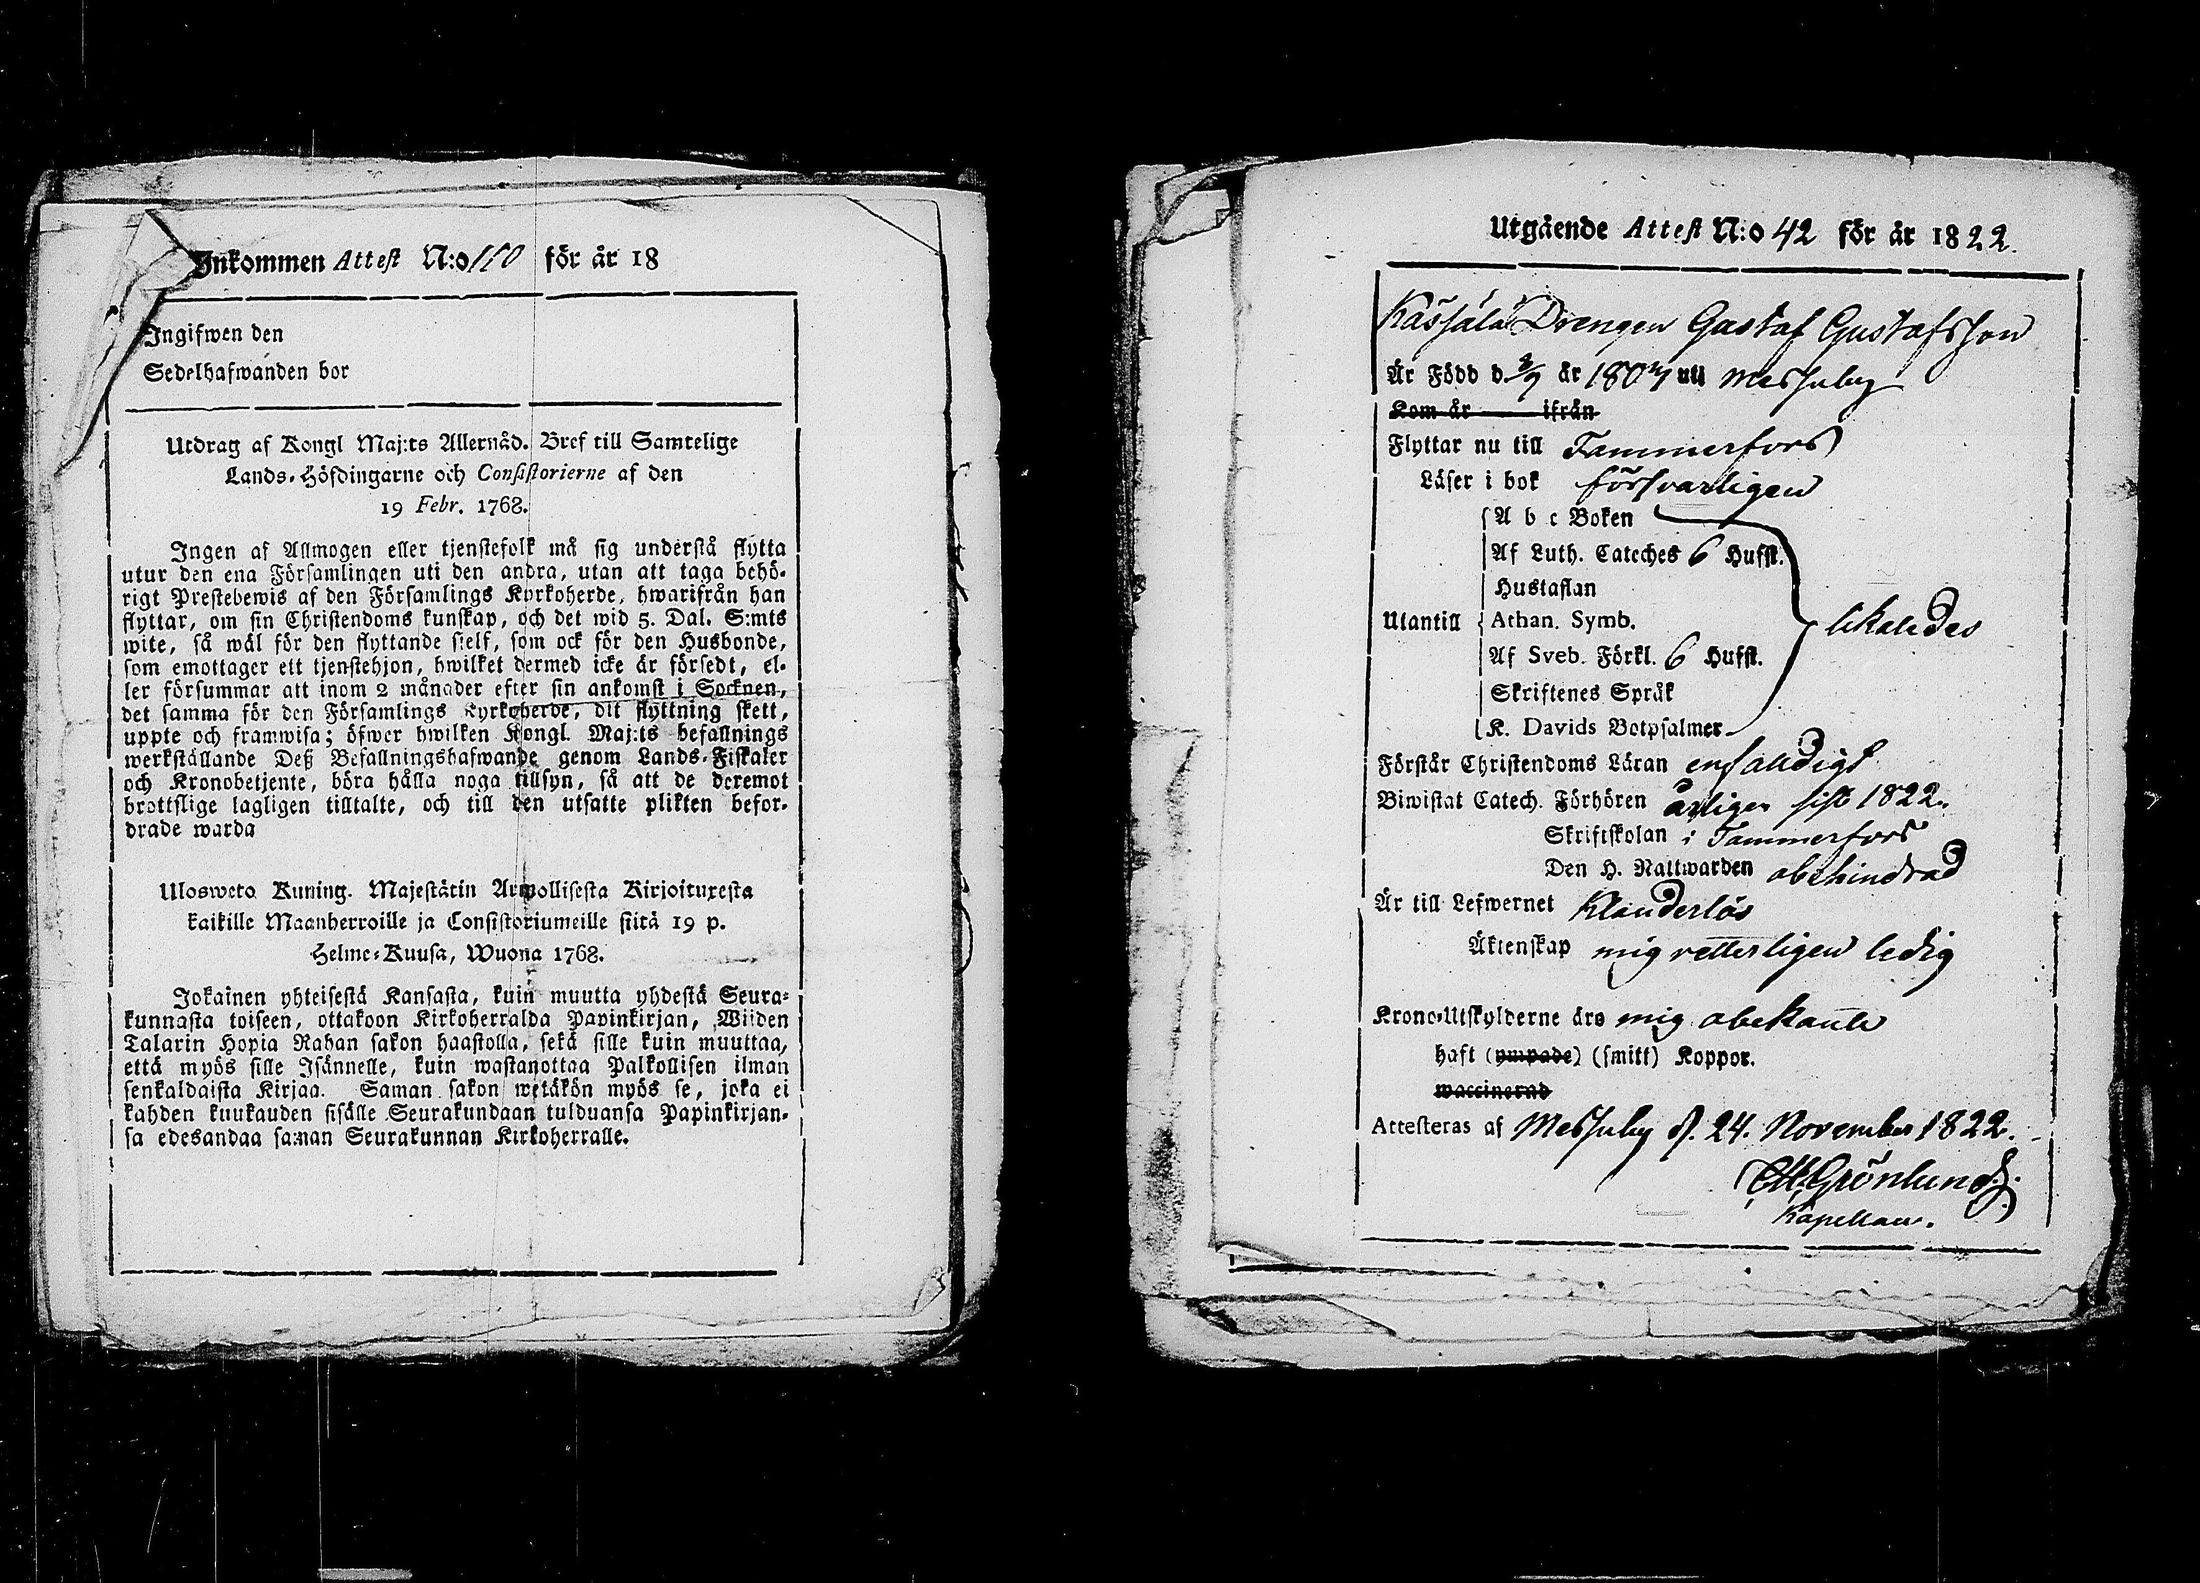 Inkommen Attest N:o 110 för år 18
Ingifwen den
Sedelhafwanden bor
Utdrag af Kongl Maj:ts Allernåd. Bref till Samtelige
Lands-Höfdingarne och Consistorierne af den
19 Febr. 1768.
Ingen af Allmogen eller tjenstefolk må sig understå flytta
utur den ena Församlingen uti den andra, utan att taga behö-
rigt Prestebewis af den Församlings Kyrkoherde, hwarifrån han
flyttar, om sin Christendoms kunskap, och det wid 5. Dal. S:mts
wite, så wäl för den flyttande sielf, som ock för den Husbonde,
som emottager ett tjenstehjon, hwilket dermed icke är försedt, el-
ler försummar att inom 2 månader efter sin ankomst i Socknen,
det samma för den Församlings Kyrkoherde, dit flyttning skett,
uppte och framwisa; öfwer hwilken Kongl. Maj:ts befallnings
werkställande Deß Befallningshafwande genom Lands-Fiskaler
och Kronobetjente, böra hålla noga tillsyn, så att de deremot
brottslige lagligen tilltalte, och till den utsatte plikten befor-
drade warda
Ulosweto Kuning. Majestätin Armollisesta Kirjoituxesta
kaikille Maanherroille ja Consistoriumeille siitä 19 p.
Helme-Kuusa, Wuona 1768.
Jokainen yhteisestä Kansasta, kuin muutta yhdestä Seura-
kunnasta toiseen, ottakoon Kirkoherralda Papinkirjan, Wiiden
Talarin Hopia Rahan sakon haastolla, sekä sille kuin muuttaa,
että myös sille Isännelle, kuin wastanottaa Palkollisen ilman
senkaldaista Kirjaa. Saman sakon wetäkön myös se, joka ei
kahden kuukauden sisälle Seurakundaan tulduansa Papinkirjan-
sa edesandaa saman Seurakunnan Kirkoherralle.
Utgående Attest N:o 42 för år 1822.
Drengen Gustaf Gustafsson
Är Född d. år 180 uti Messuby
Kom år ifrån
Flyttar nu till Tammerfors
Läser i bok försvarligen
A b c Boken
Af Luth. Cateches 6 Hufst.
Hustaflan
Utantill Athan. Symb. likaledes
Af Sveb. Förkl. 6 Hufst.
Skriftenes Språk
K. Davids Botpsalmer
Förstår Christendoms Läran enfaldigt
Biwistat Catech. Förhören årligen sist 1822.
Skriftskolan i Tammerfors
Den H. Nattwarden obehindrad
Är till Lefwernet Klanderlös
Äktenskap mig vetterligen ledig
Krono-Utskylderne äro mig obekante
haft (ympade) (smitt) Koppor.
waccinerad
Attesteras af Messuby d. 24. November 1822.
Grönlund
Kapellan.